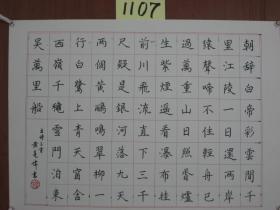 1107
朝辞白帝彩雲間千
里江陵一日還兩岸
猿聲啼不住輕舟已
過萬重山日照香爐
生紫煙遙看瀑布挂
前川飛流直下三千
尺疑是銀河落九天
兩個黃鸝鳴翠柳一
行白鷺上青天窗含
西嶺千龝雪門泊東
吳萬里船